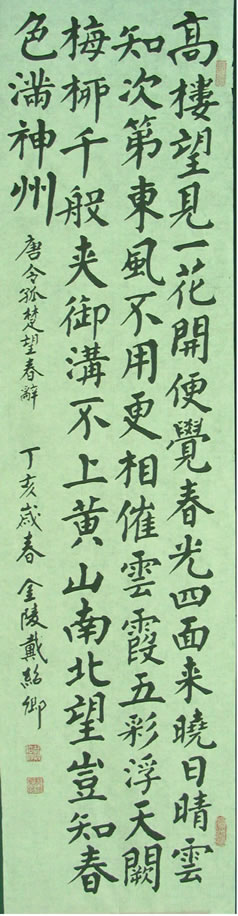 高樓望見一花開便覺春光四面来曉日晴雲
知次第東風不用更相催雲霞五彩浮天闕
梅柳千般夾御溝不上黄山南北望豈知春
色滿神州 唐令孤楚望春辭 丁亥歲春 金陵戴紹卿